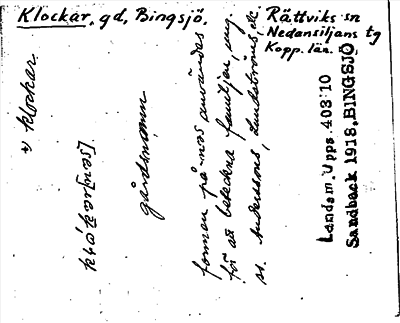 Klockar, gd, Bingsjö,
Rättviks sn
Nedansiljans tg
Kopp. län.
*) klockar
gårdsnamn
formen på -nas användes
för att beteckna familjen, ung.
Anderssons, Lundströms,
Landsm. Upps. 403:10
Sandback 1918, BINGSJÖ